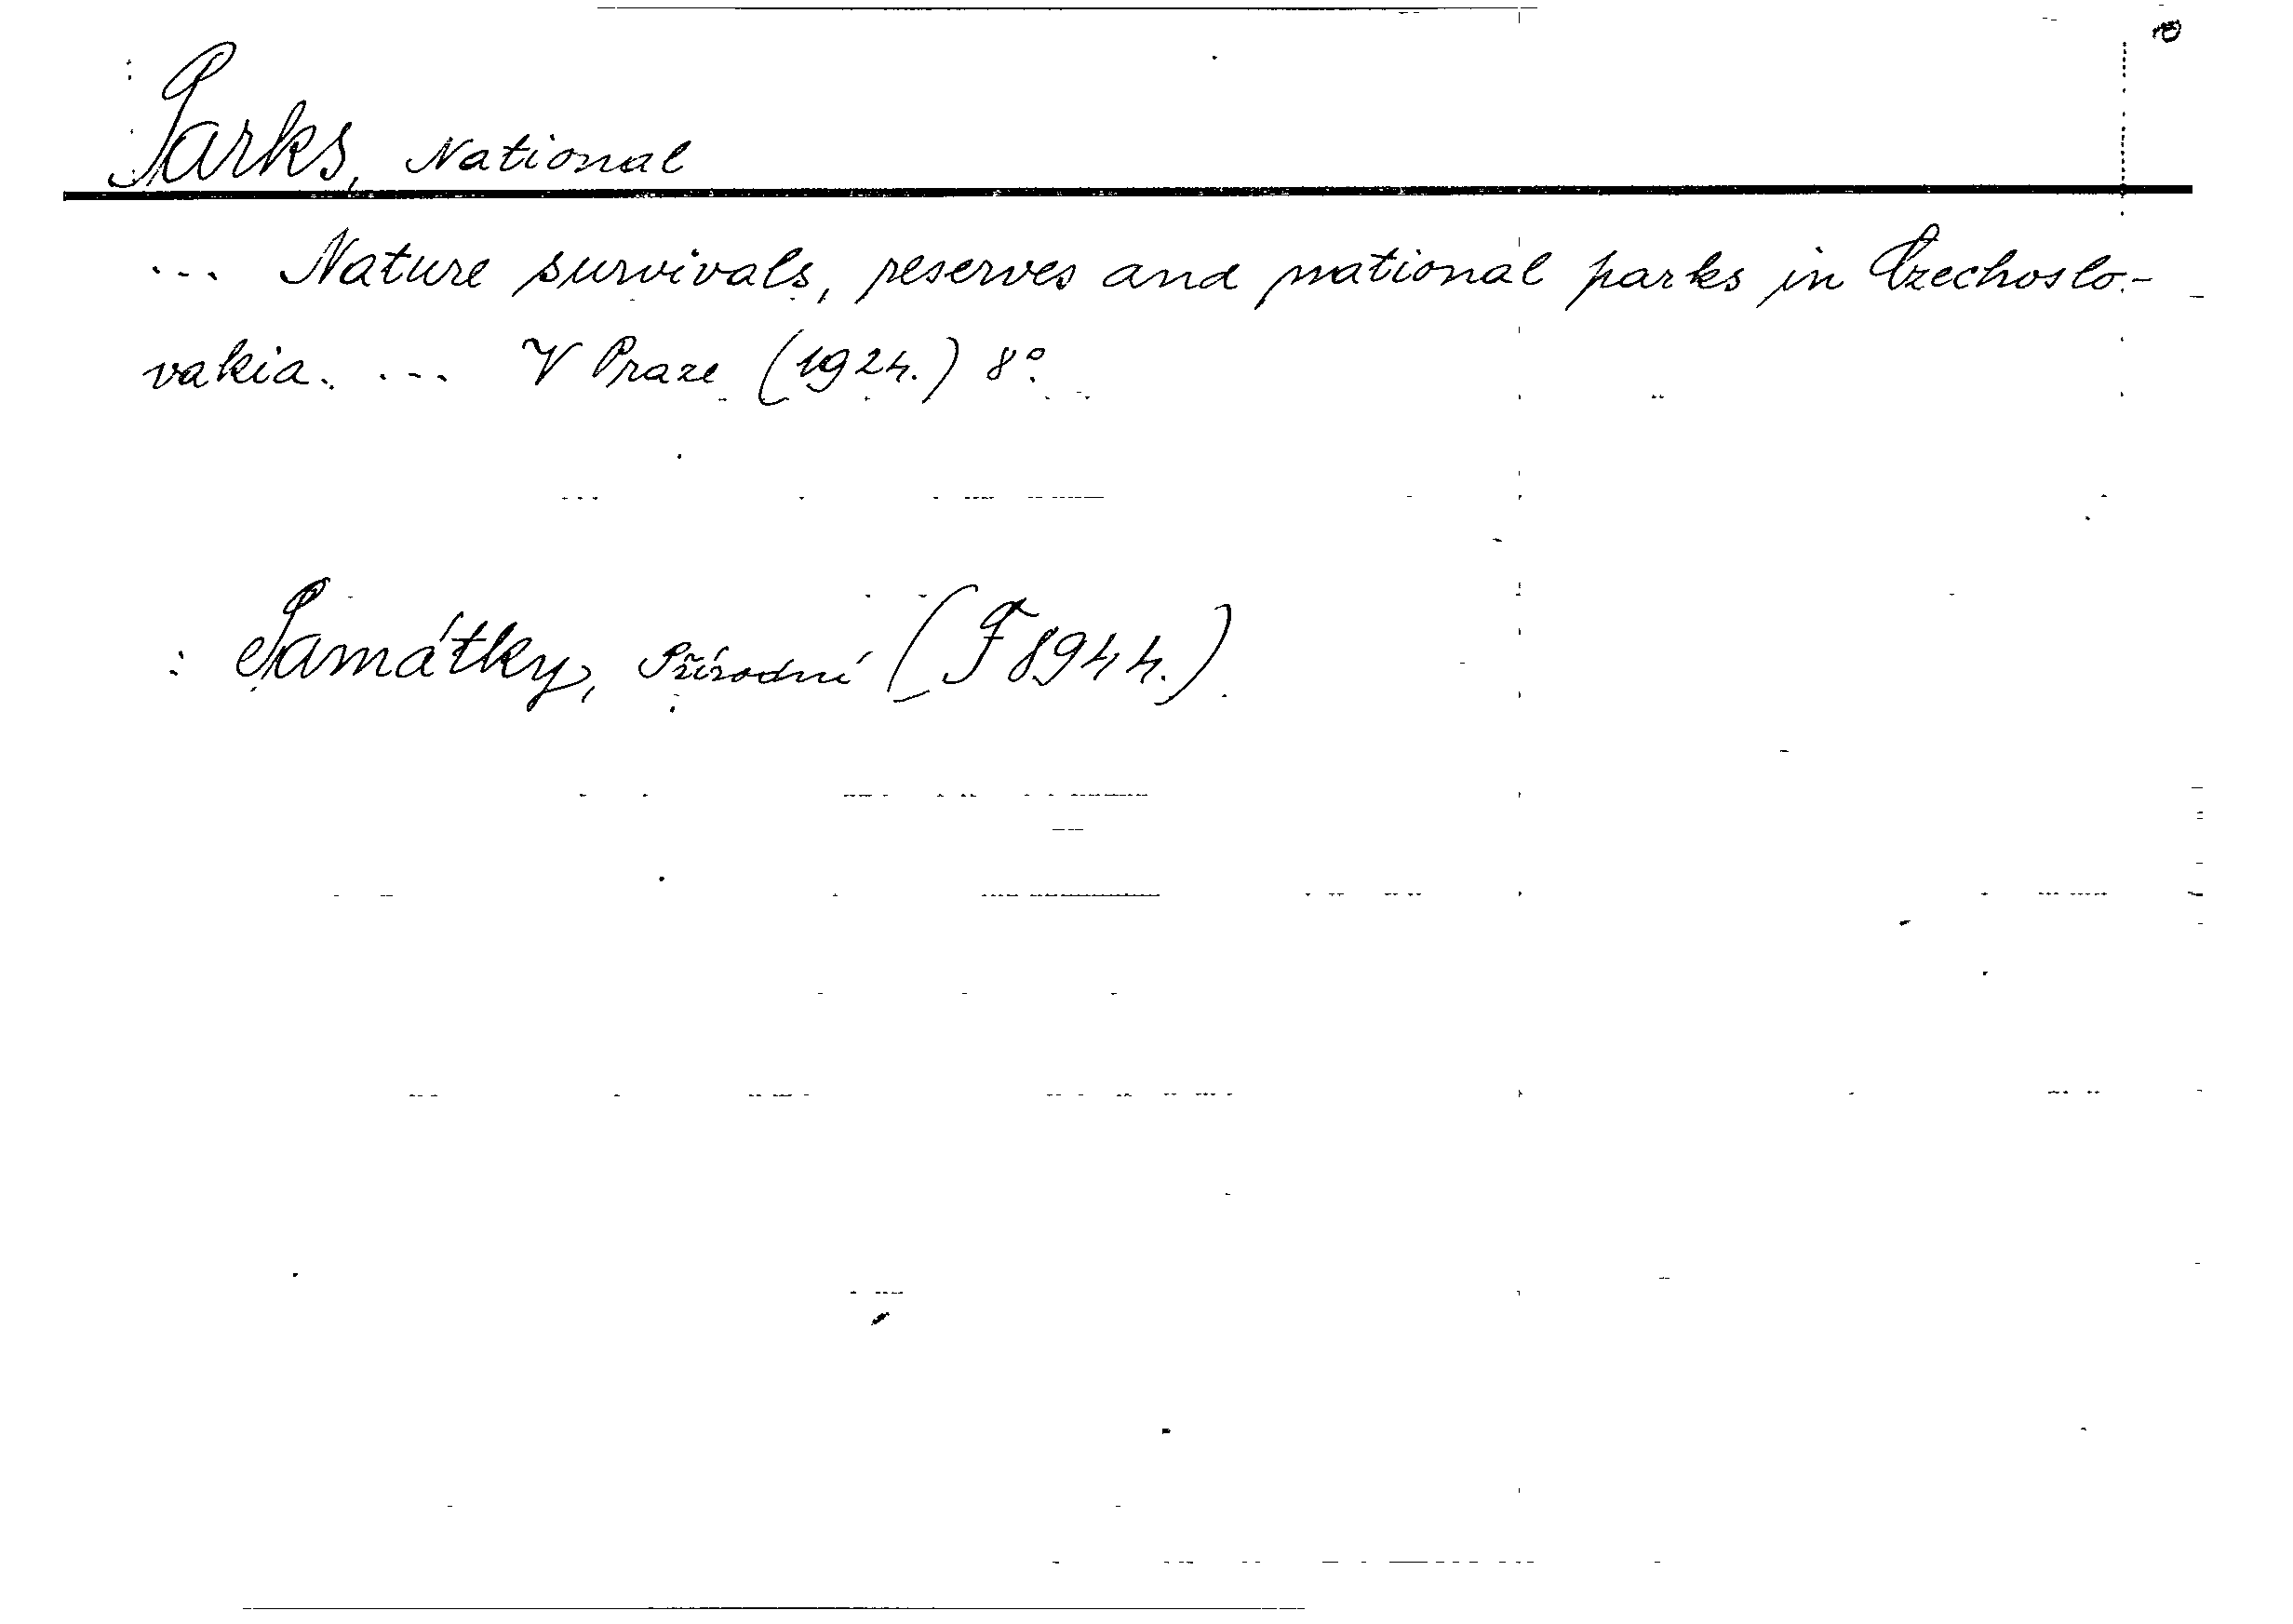 Parks, National
... Nature survivals, reserves and national parks in Czechoslo-
vakia. ... V Praze (1924.) 8°.
: Památky, Přírodní (F 8944.)